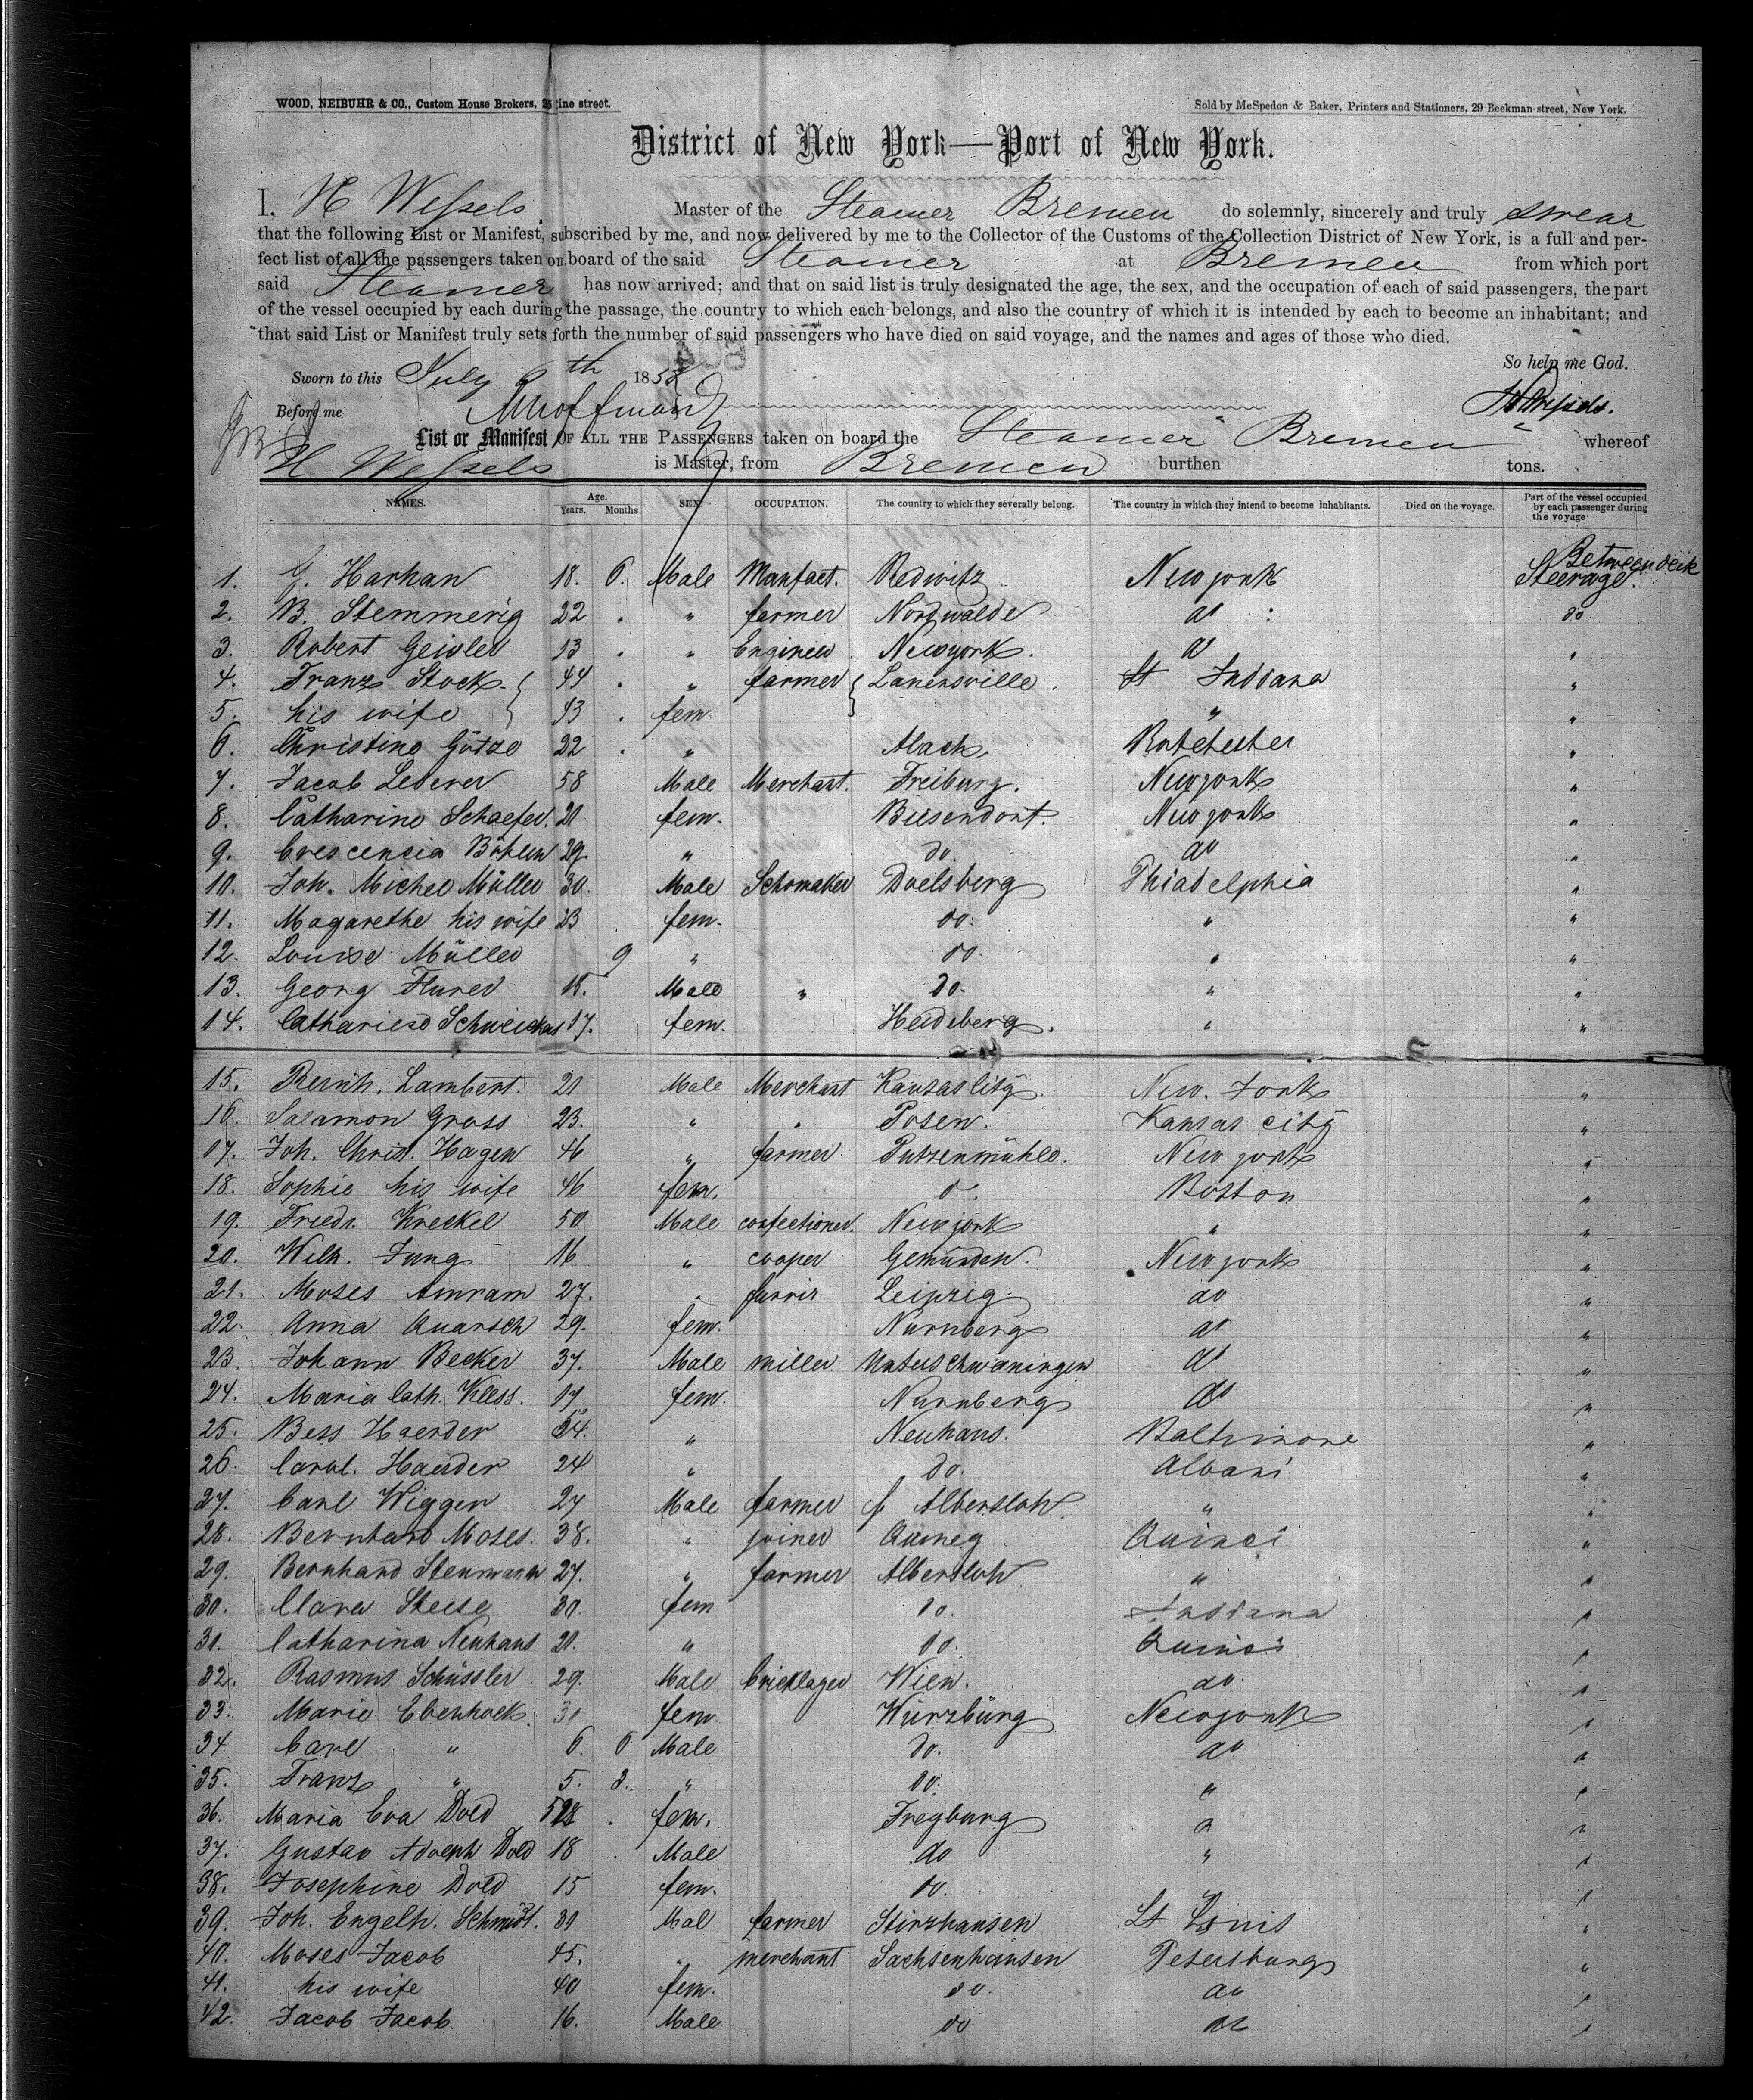 WOOD, NEIBUHR & CO., Custom House Brokers, 25 ine street.
Sold by McSpedon & Baker, Printers and Stationers, 29 Beekman-street, New York.
District of New York—Port of New York.
I, H Wessels Master of the Steamer Bremen do solemnly, sincerely and truly swear
that the following List or Manifest, subscribed by me, and now delivered by me to the Collector of the Customs of the Collection District of New York, is a full and per-
fect list of all the passengers taken on board of the said Steamer at Bremen from which port
said Steamer has now arrived; and that on said list is truly designated the age, the sex, and the occupation of each of said passengers, the part
of the vessel occupied by each during the passage, the country to which each belongs, and also the country of which it is intended by each to become an inhabitant; and
that said List or Manifest truly sets forth the number of said passengers who have died on said voyage, and the names and ages of those who died.
So help me God.
Sworn to this July 6th 1858
Before me Mhoffman H Wessels.
List or Manifest OF ALL THE PASSENGERS taken on board the Steamer Bremen whereof
H Wessels is Master, from Bremen burthen tons.
NAMES. Age. Years. Months. SEX. OCCUPATION. The country to which they severally belong. The country in which they intend to become inhabitants. Died on the voyage. Part of the vessel occupied by each passenger during the voyage
Between deck
1. G. Harhan 18. 6. Male Manfact. Redwitz. Newyork Steerage.
2. B. Stemmerig 22 . " farmer Nordwalde do : do
3. Robert Geisler 13 . " Engineer Newyork. do "
4. Franz Stock 44 . " farmer Lanensville. St Indiana "
5. his wife 43 . fem " "
6. Christine Götze 22 . " Alach. "
7. Jacob Lederer 58 Male Merchant. Freiburg. Newyork "
8. Catharine Schaefer. 21 fem. Biesendorf. Newyork "
9. Crescencia 29 " do. do "
10. Joh. Michel Müller 30. Male Schomaker Doelsberg Phiadelphia "
11. Magarethe his wife 23 fem. do. " "
12. Louise Müller 9 " do. " "
13. Georg Flurer 18. Male " do. " "
14. 17. fem. Heideberg. " "
15. Bernh. Lambert. 21 Male Merchant Kansas City. New. York "
16. Salamon Gross 23. " " Posen. Kansas city "
17. Joh. Christ. Hagen 46 " farmer Putzenmühle. New york "
18. Sophie his wife 46 fem. d. Boston "
19. Friedr. Kreckel 50 Male confectioner. Newyork " "
20. Wilh. Jung 16 " cooper Gemünden. Newyork "
21. Moses Amram 27. " furrir Leipzig do "
22. Anna Quarsch 29. fem. Nurnberg do "
23. Johann Becker 37. Male miller Unterschwaningen do "
24. Maria Cath. Kless. 17 fem. Nurnberg do "
25. Bess Haerder 54. " Neuhaus. Baltimore "
26. Carol. Haerder 24 " do. Albani "
27. Carl Wigger 27 Male farmer Albersloh. " "
28. Bernhard Moses. 38. " joiner Quineg Quinci "
29. Bernhard Stenmann 27. " farmer Albersloh " "
30. Clara Steese 30. fem do. Indiana "
31. Catharina Neuhaus 21. " do. Quinci "
32. Rasmus Schüssler 29. Male bricklager Wien. do "
33. Marie Ebenhoek. 31 fem. Würzbürg Newyork "
34 Carl " 6. 6 Male do. do "
35. Franz " 5. 3. " do. " "
36. Maria Eva Dold 52 . fem. Freyburg " "
37. Gustav Adolph Dold 18 . Male do " "
38. Josephine Dold 15 fem. do. " "
39. Joh. Engelh. Schmidt. 31 Mal farmer Stirzhausen St Louis "
40. Moses Jacob 45. " merchant Sachsenhausen Petersburg "
41. his wife 40 fem. do. do "
42. Jacob Jacob 16. Male do do "